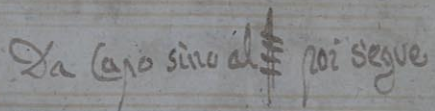 Da Capo sino al 𝄋 poi segue